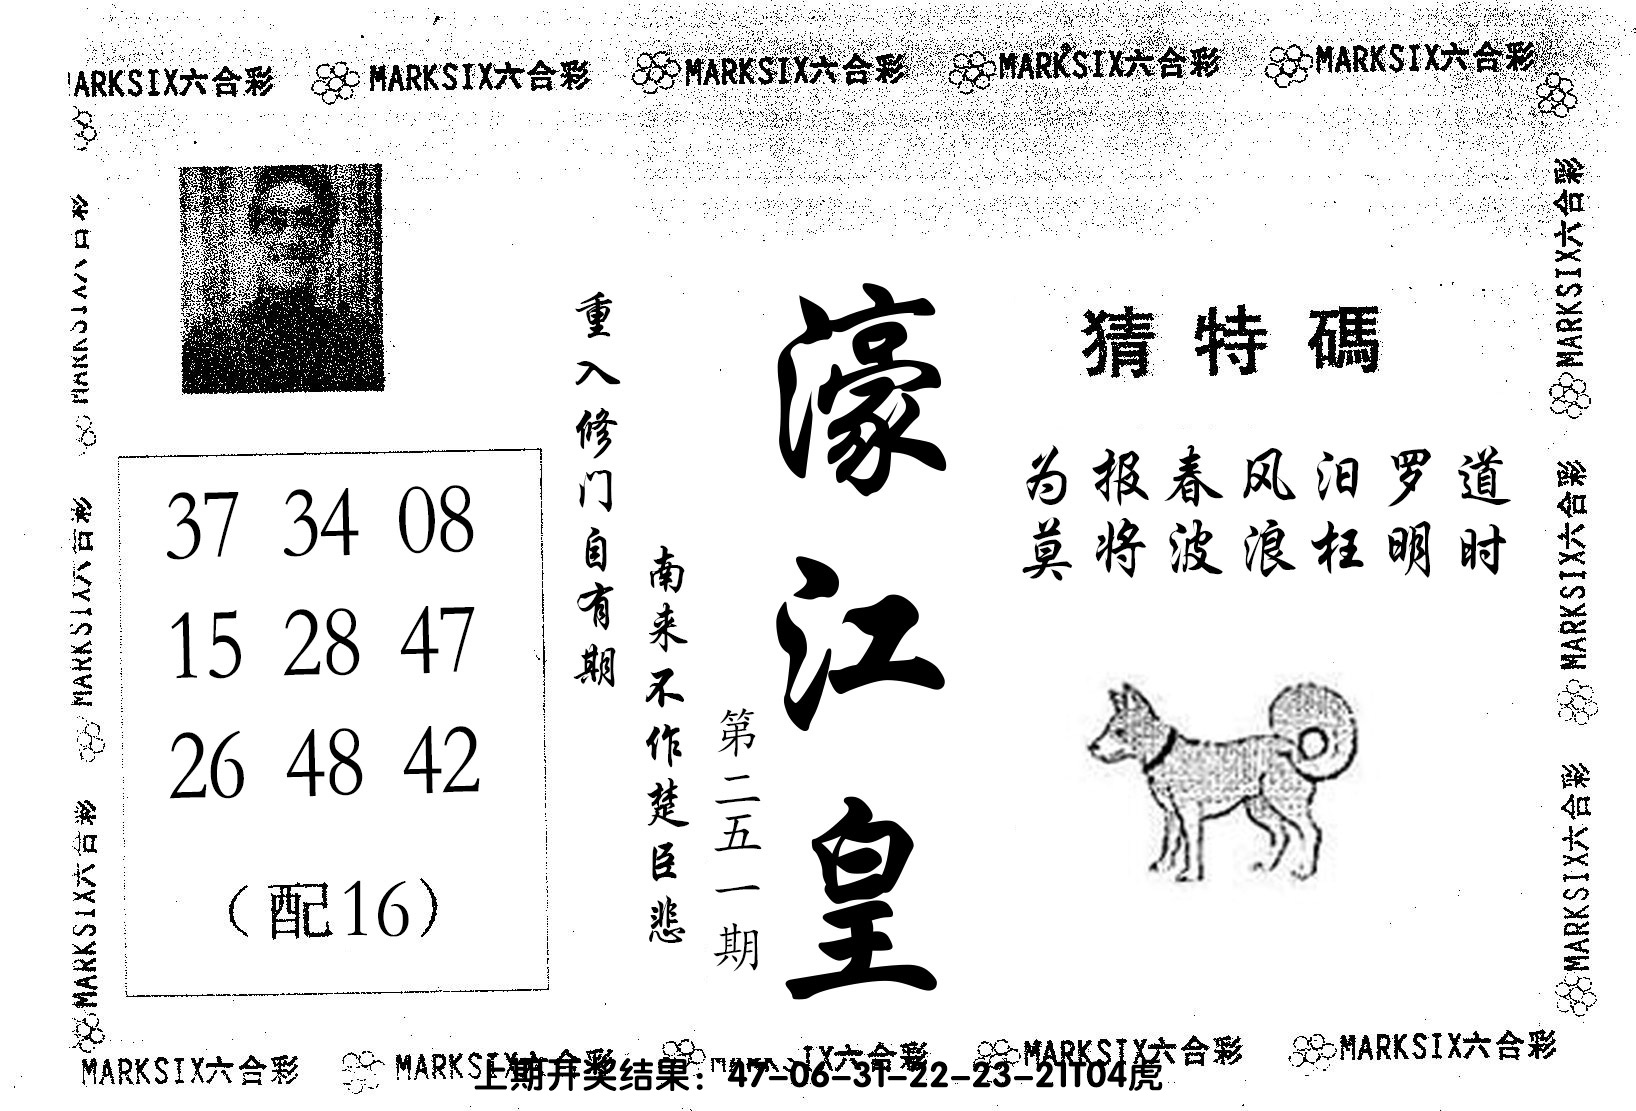 MARKSIX六合彩 MARKSIX六合彩 MARKSIX六合彩 MARKSIX六合彩
猜特碼
为报春风汨罗道
莫将波浪枉明时
濠江皇
第二五一期
南来不作楚臣悲
重入修门自有期
37 34 08
15 28 47
26 48 42
（配16）
MARKSIX六合彩
MARKSIX六合彩
MARKSIX六合彩
MARKSIX六合彩
MARKSIX六合彩
MARKSIX六合彩 MARKSIX六合彩 MARKSIX六合彩 MARKSIX六合彩
上期开奖结果：47-06-31-22-23-21T04虎